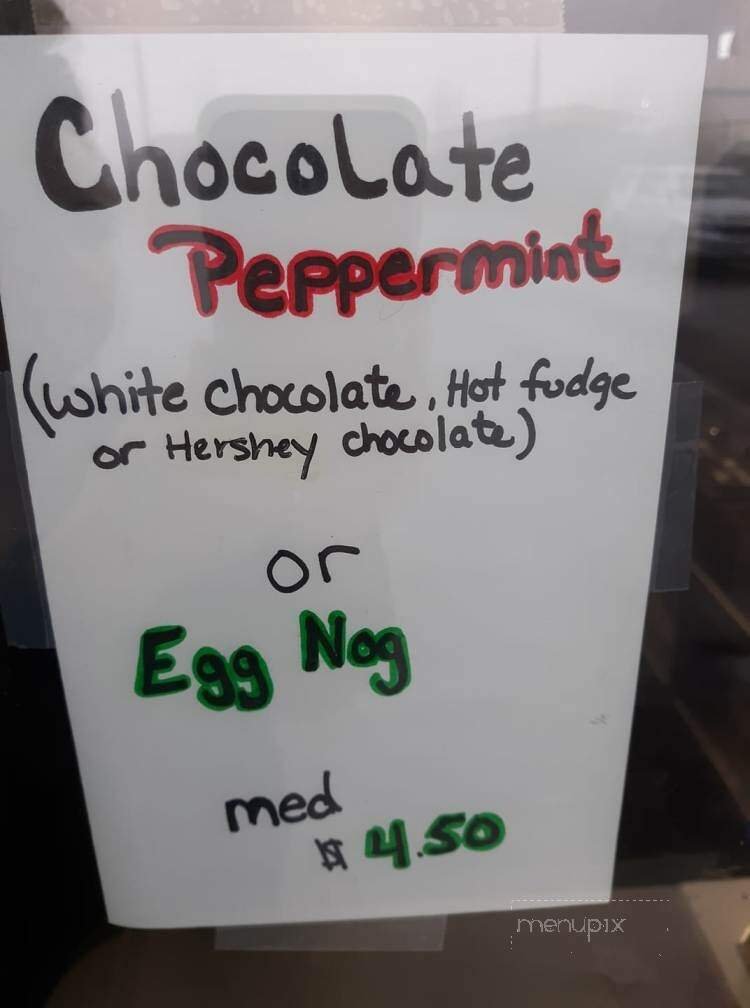 Chocolate
Peppermint
(white chocolate, Hot fudge
or Hershey chocolate)
or
Egg Nog
med
$ 4.50
menupix